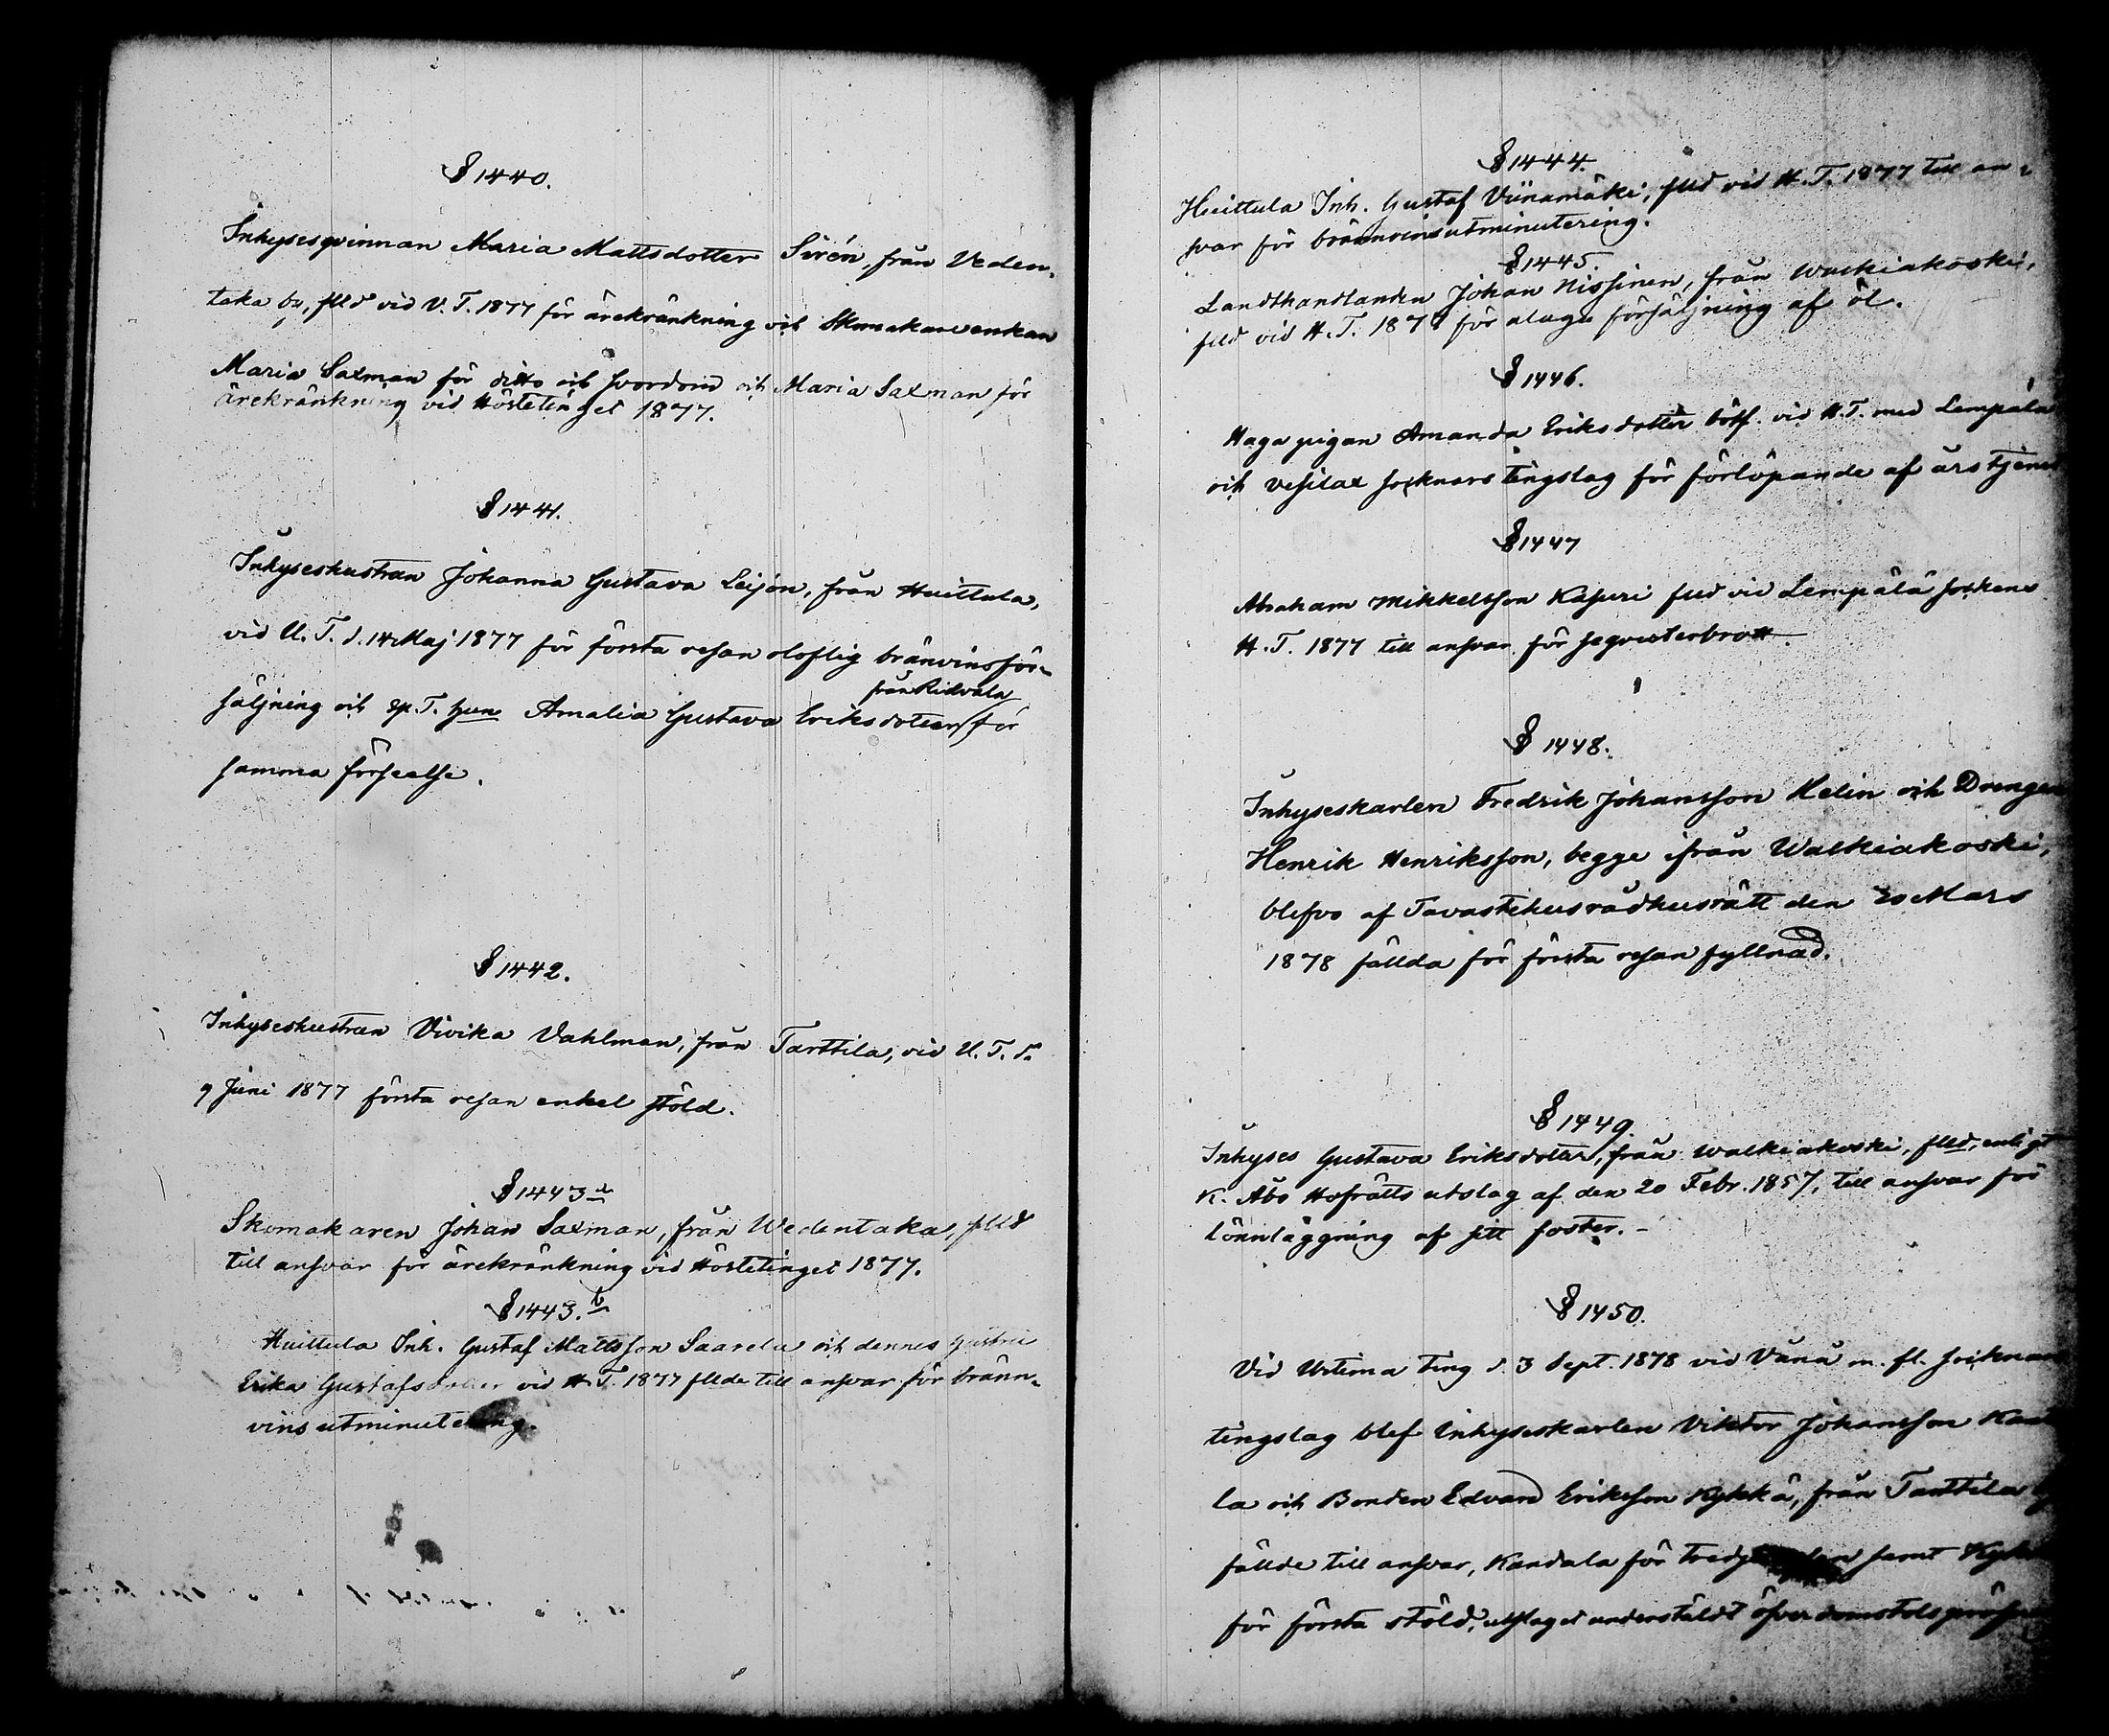 § 1440.
Inhysesqvinnan Maria Mattsdotter Sirén, från Veden-
taka by, flld vid V. T. 1877 för ärekränkning och Skomakarenkan
Maria Saxman för ditto och svordom och Maria Saxman för
ärekränkning vid Höstetinget 1877.
§ 1441.
Inhyseshustrun Johanna Gustava Leijon, från Huittula,
vid U. T. d. 14 Maj 1877 för första resan oloflig bränvinsför-
från Ridvala
säljning och Amalia Gustava Eriksdotter för
samma förseelse.
§ 1442.
Inhyseshustrun Vivika Vahlman, från Tarttila, vid U. T. d.
9 Juni 1877 första resan enkel stöld.
§ 1443 a
Skomakaren Johan Saxman, från Wedentaka, flld
till ansvar för ärekränkning vid Höstetinget 1877.
§ 1443. b
Huittula Inh. Gustaf Mattsson Saarela och dennes hustru
Erika Gustafsdotter vid H. T. 1877 fllde till ansvar för bränn-
vins utminutering.
§ 1444.
Huittula Inh. Gustaf Viinamäki, flld vid H. T. 1877 till an-
svar för brännvinsutminutering.
§ 1445.
Landthandlanden Johan Nissinen, från Walkiakoski,
flld vid H. T. 1877 för olaga försäljning af öl.
§ 1446.
Haga pigan Amanda Eriksdotter bötf. vid H. T. med Lempälä
och Vesilax socknars tingslag för förlöpande af årstjenst
§ 1447
Abraham Mikkelsson Kasuri flld vid Lempälä sockens
H. T. 1877 till ansvar för seqvesterbrott.
§ 1448.
Inhyseskarlen Fredrik Johansson Helin och Drengen
Henrik Henriksson, begge ifrån Walkiakoski,
blefvo af Tavastehus rådhusrätt den 20 Mars
1878 fällda för första resan fyllnad.
§ 1449.
Inhyses Gustava Eriksdotter, från Walkiakoski, flld, enligt
K. Åbo Hofrätts utslag af den 20 Febr. 1857, till ansvar för
lönnläggning af sitt foster. -
§ 1450.
Vid Urtima ting d. 3 Sept. 1878 vid Vånå m. fl. socknars
tingslag blef Inhyseskarlen Viktor Johansson Kan
la och Bonden Edvard Eriksson Kykkä, från Tarttila by
fällde till ansvar, Kandala för tredje resan samt Kykkä
för första stöld, utslaget underställdt öfverdomstols pröfn